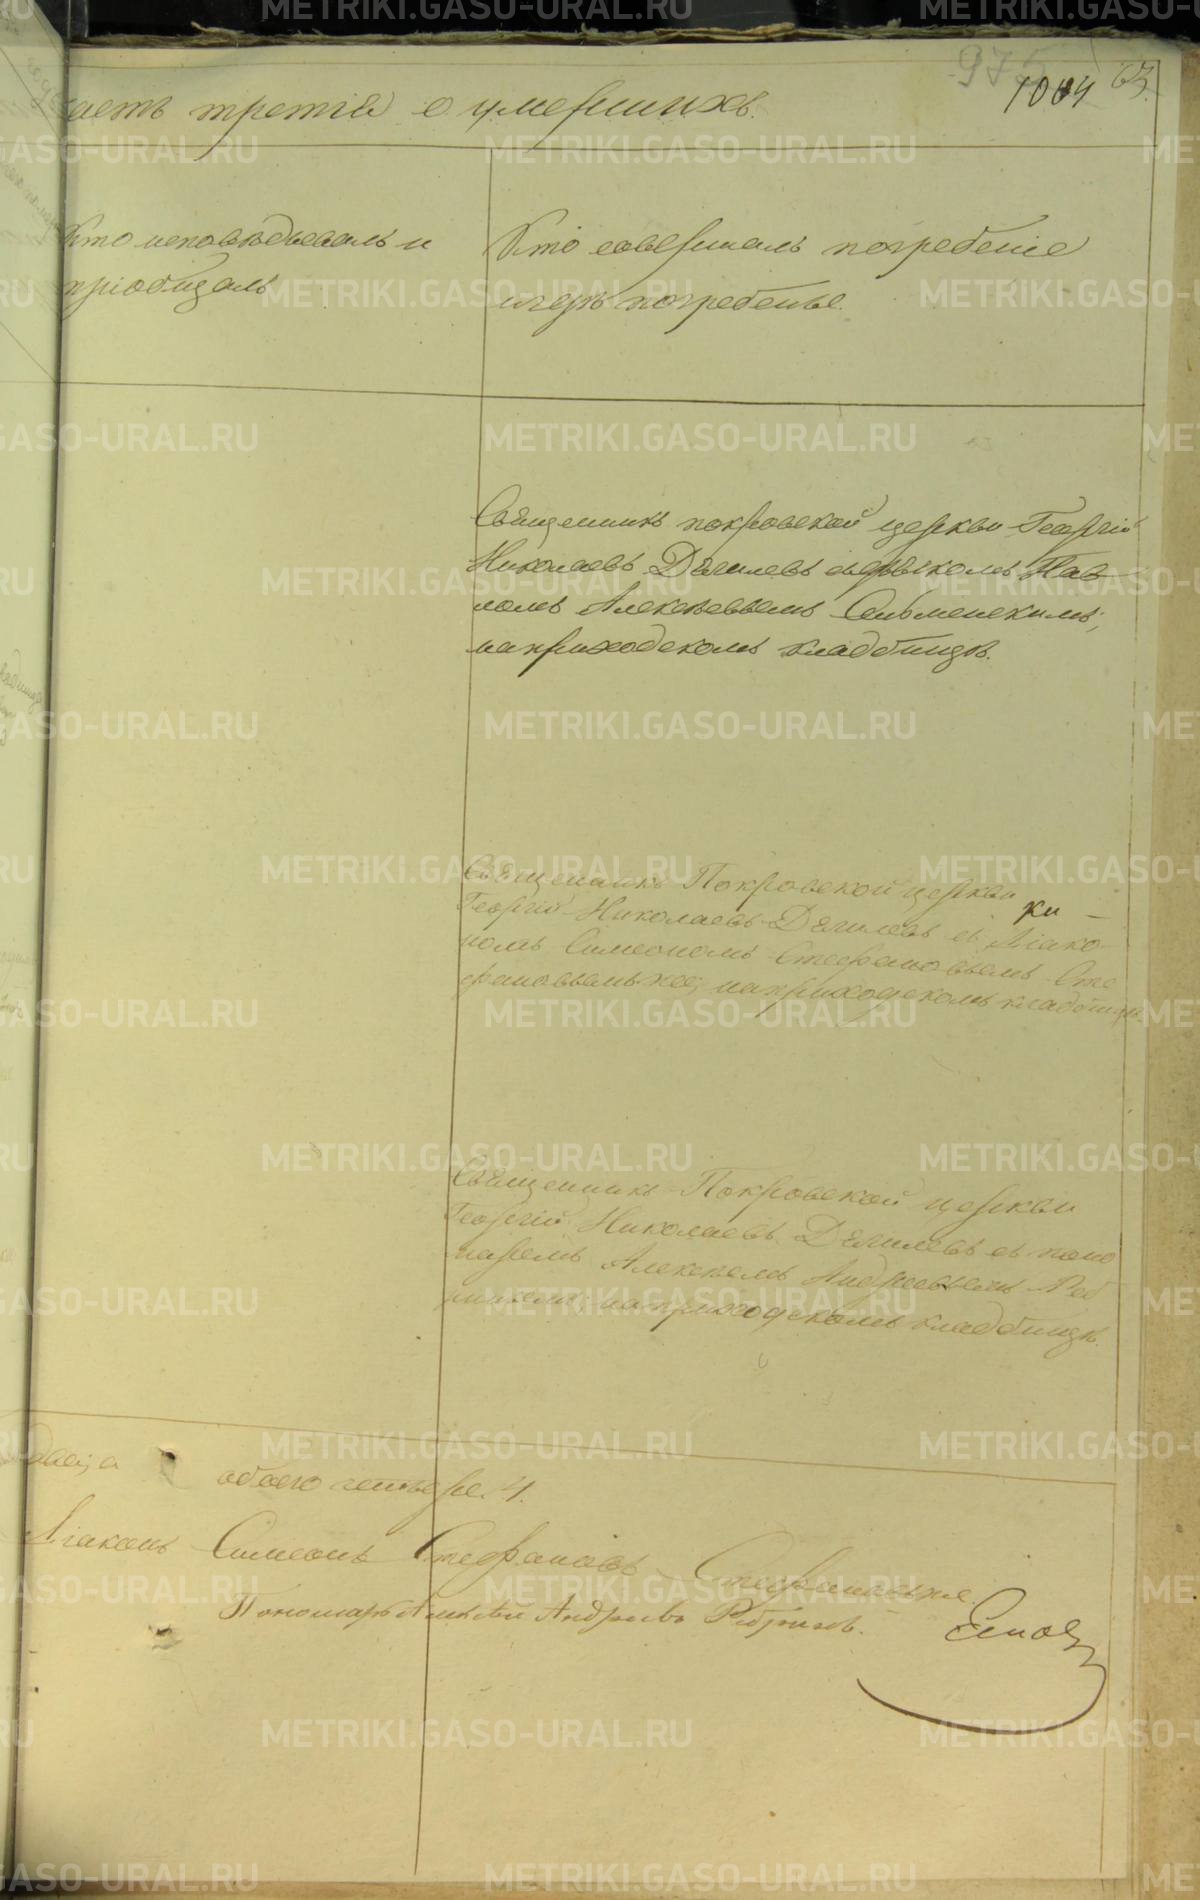 975
1004 63.
часть третія о умершихъ.
Кто исповѣдывалъ и
пріобщалъ
Кто совершалъ погребеніе
и гдѣ погребены.
Священникъ покровской церкви Георгій
Николаевъ Дягилевъ съ дьякомъ Пав
ломъ Алексѣевымъ Сельменскимъ;
на приходскомъ кладбищѣ.
Священникъ Покровской церкви
Георгій Николаевъ Дягилевъ съ Діако
номъ Симеономъ Стефановымъ Сте
фановымъ же; на приходскомъ кладбищѣ
Священникъ Покровской церкви
Георгій Николаевъ Дягилевъ съ поно
маремъ Алексѣемъ Андреевымъ
на приходскомъ кладбищѣ.
обоего четыре. 4.
Діаконъ Симеонъ Стефановъ Стефановъ же.
Пономарь Алексѣй Андреевъ
METRIKI.GASO-URAL.RU